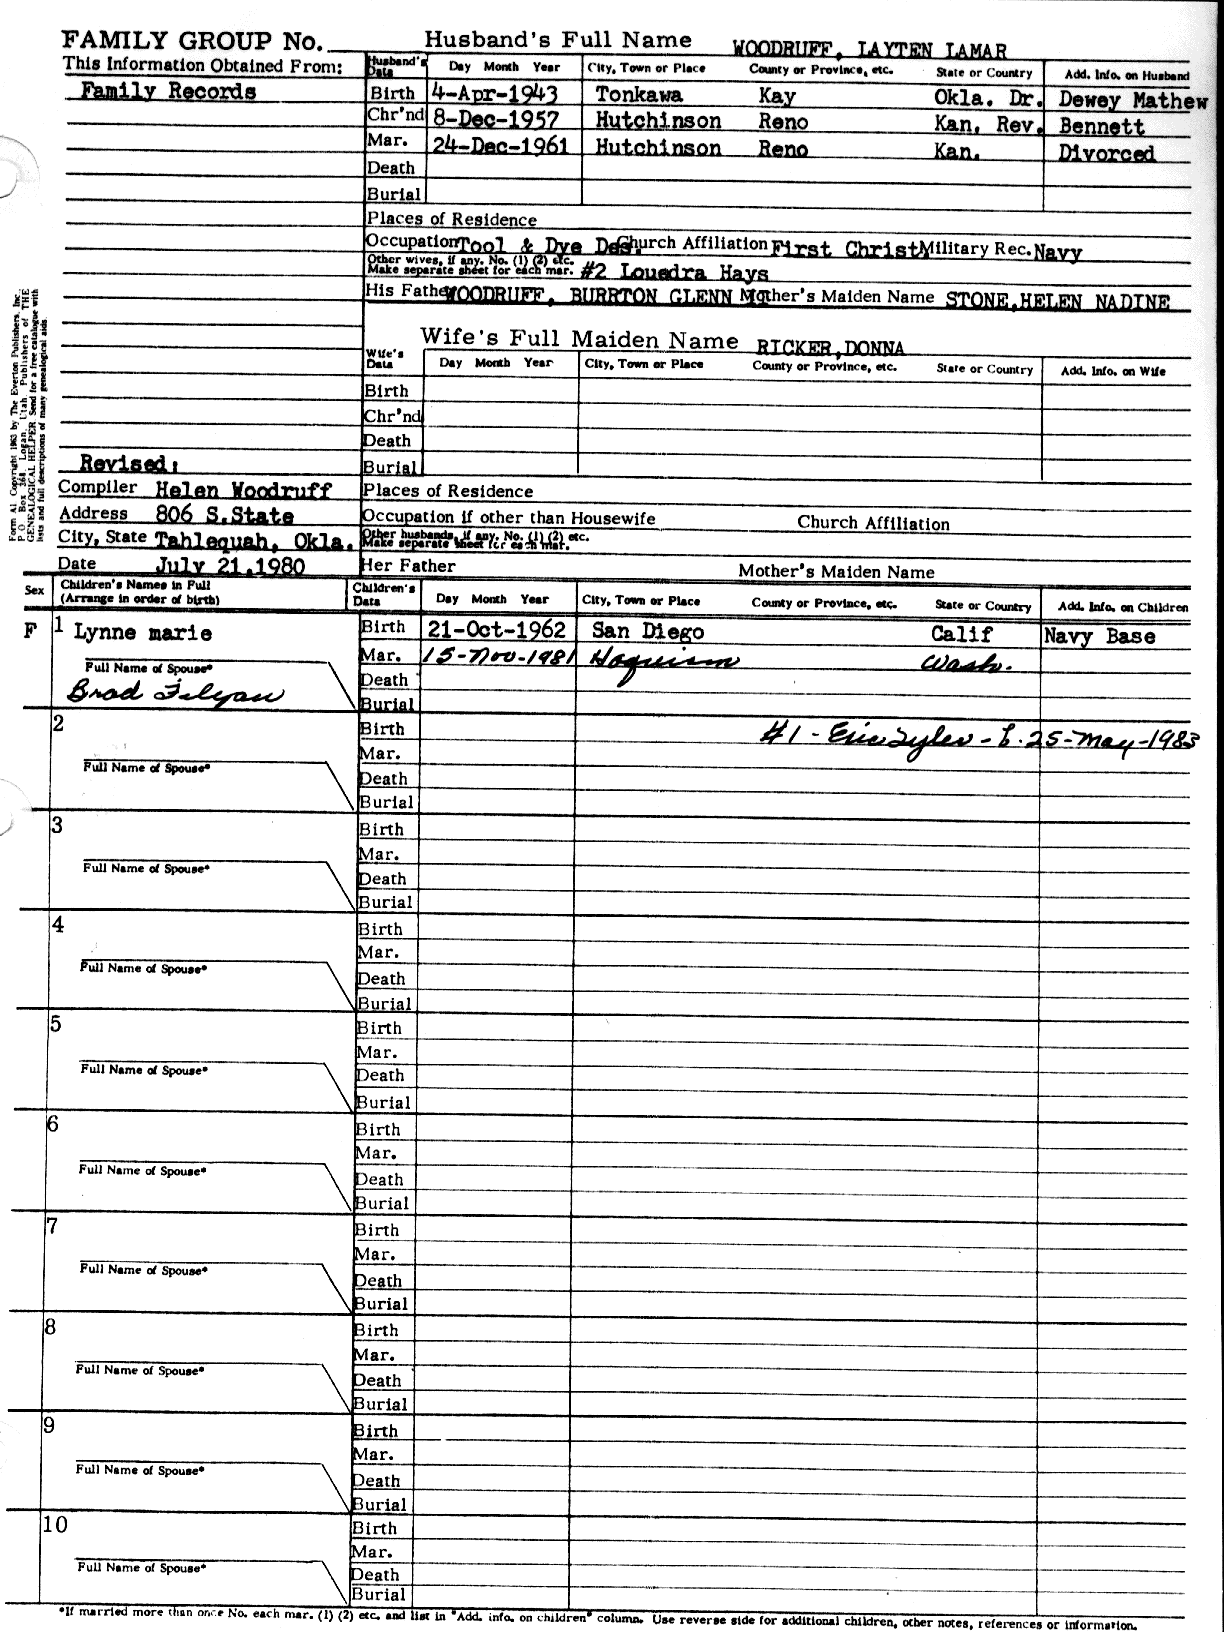 FAMILY GROUP No.
Husband's Full Name WOODRUFF, LAYTEN LAMAR
This Information Obtained From:
Family Records
Husband's Data Day Month Year City, Town or Place County or Province, etc. State or Country Add. Info. on Husband
Birth 4-Apr-1943 Tonkawa Kay Okla. Dr. Dewey Mathew
Chr'nd 8-Dec-1957 Hutchinson Reno Kan. Rev. Bennett
Mar. 24-Dec-1961 Hutchinson Reno Kan. Divorced
Death
Burial
Places of Residence
Occupation Tool & Dye Des. Church Affiliation First Christ Military Rec. Navy
Other wives, if any. No. (1) (2) etc.
Make separate sheet for each mar. #2 Louedra Hays
His Father WOODRUFF, BURRTON GLENN Mother's Maiden Name STONE,HELEN NADINE
Wife's Full Maiden Name RICKER,DONNA
Wife's Data Day Month Year City, Town or Place County or Province, etc. State or Country Add. Info. on Wife
Birth
Chr'nd
Death
Burial
Form A1. Copyright 1963 by The Everton Publishers, Inc.,
P.O. Box 368, Logan, Utah. Publishers of THE
GENEALOGICAL HELPER. Send for a free catalogue with
lists and full descriptions of many genealogical aids.
Revised:
Compiler Helen Woodruff
Address 806 S.State
City, State Tahlequah, Okla.
Date July 21,1980
Places of Residence
Occupation if other than Housewife Church Affiliation
Other husbands, if any. No. (1) (2) etc.
Make separate sheet for each mar.
Her Father Mother's Maiden Name
Sex Children's Names in Full
(Arrange in order of birth)
Children's Data Day Month Year City, Town or Place County or Province, etc. State or Country Add. Info. on Children
F 1 Lynne marie Birth 21-Oct-1962 San Diego Calif Navy Base
Mar. 15-Nov-1981 Hoquiam Wash.
Full Name of Spouse*
Death
Brad
Burial
2 Birth #1 - Eric Tyler - b. 25-May-1983
Mar.
Full Name of Spouse*
Death
Burial
3 Birth
Mar.
Full Name of Spouse*
Death
Burial
4 Birth
Mar.
Full Name of Spouse*
Death
Burial
5 Birth
Mar.
Full Name of Spouse*
Death
Burial
6 Birth
Mar.
Full Name of Spouse*
Death
Burial
7 Birth
Mar.
Full Name of Spouse*
Death
Burial
8 Birth
Mar.
Full Name of Spouse*
Death
Burial
9 Birth
Mar.
Full Name of Spouse*
Death
Burial
10 Birth
Mar.
Full Name of Spouse*
Death
Burial
*If married more than once No. each mar. (1) (2) etc. and list in "Add. info. on children" column. Use reverse side for additional children, other notes, references or information.